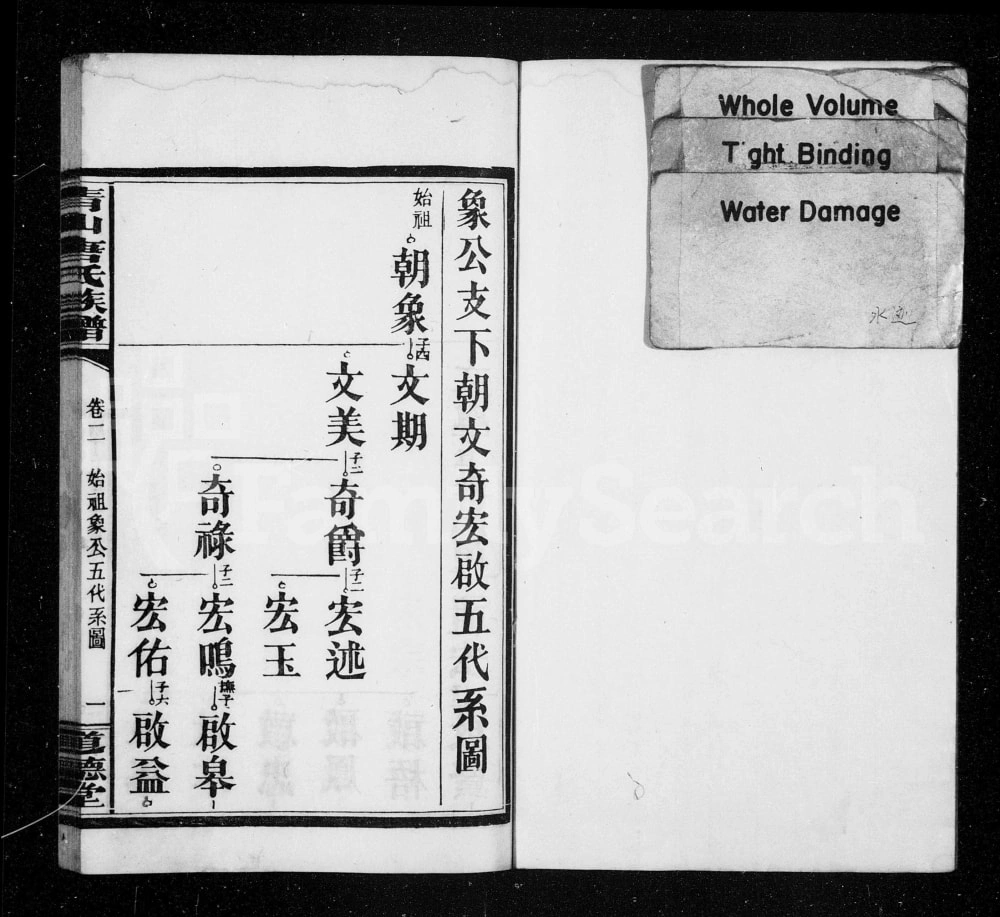 Whole Volume
T ght Binding
Water Damage
象公支下朝文奇宏啟五代系圖
始祖
朝象
子四
文期
文美
子二
奇爵
子二
宏述
宏玉
奇祿
子二
宏鳴
撫子
啟皋
宏佑
子六
啟益
青山唐氏族譜
卷二
始祖象公五代系圖
一
道德堂
FamilySearch